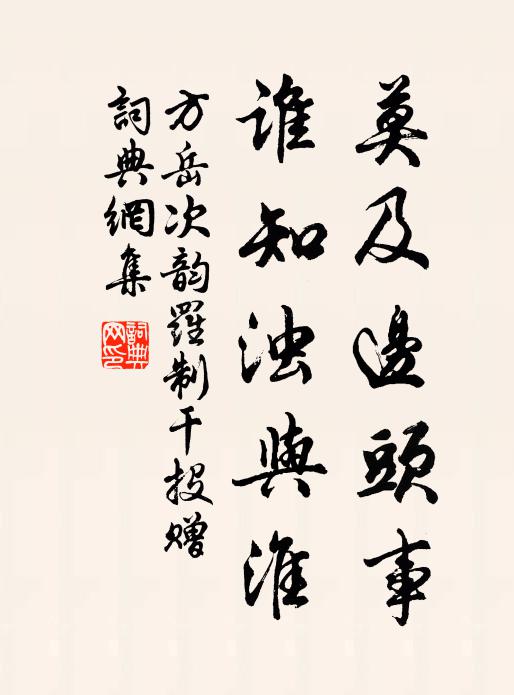 莫及邊頭事
誰知浊與淮
方岳次韵羅制干投赠
詞典網集
詞典
网印